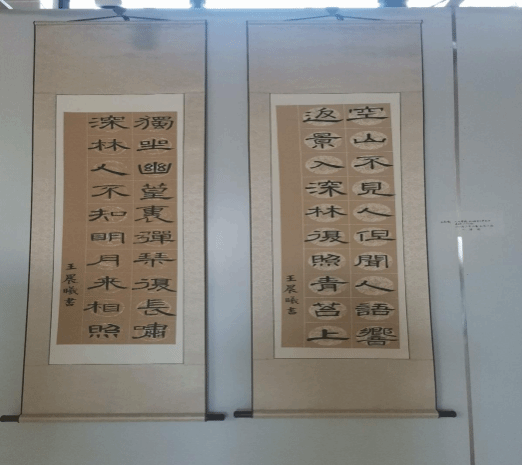 空山不見人但聞人語響
返景入深林復照青苔上
王展曦書
獨坐幽篁裏彈琴復長嘯
深林人不知明月來相照
王展曦書